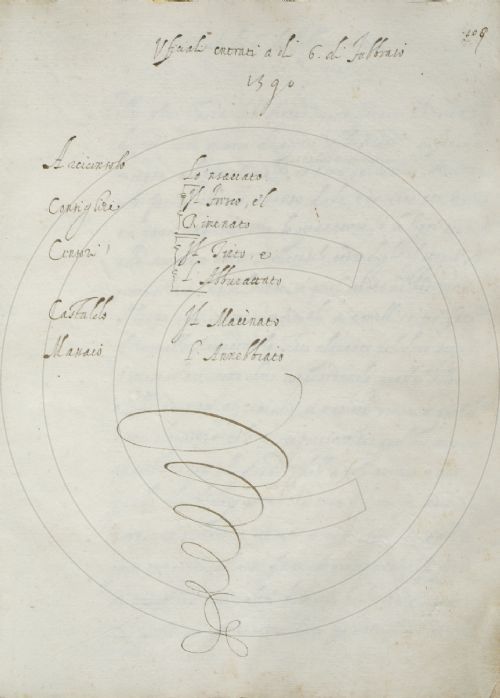 109
Ufiziali entrati a dì 6. di Febbraio
1590
Arciconsolo Lo 'nsaccato
Consiglieri Il Furio, e 'l
Rimenato
Censori Il Trito, e
L' Abburattato
Castaldo Il Macinato
Massaio L' Annebbiato